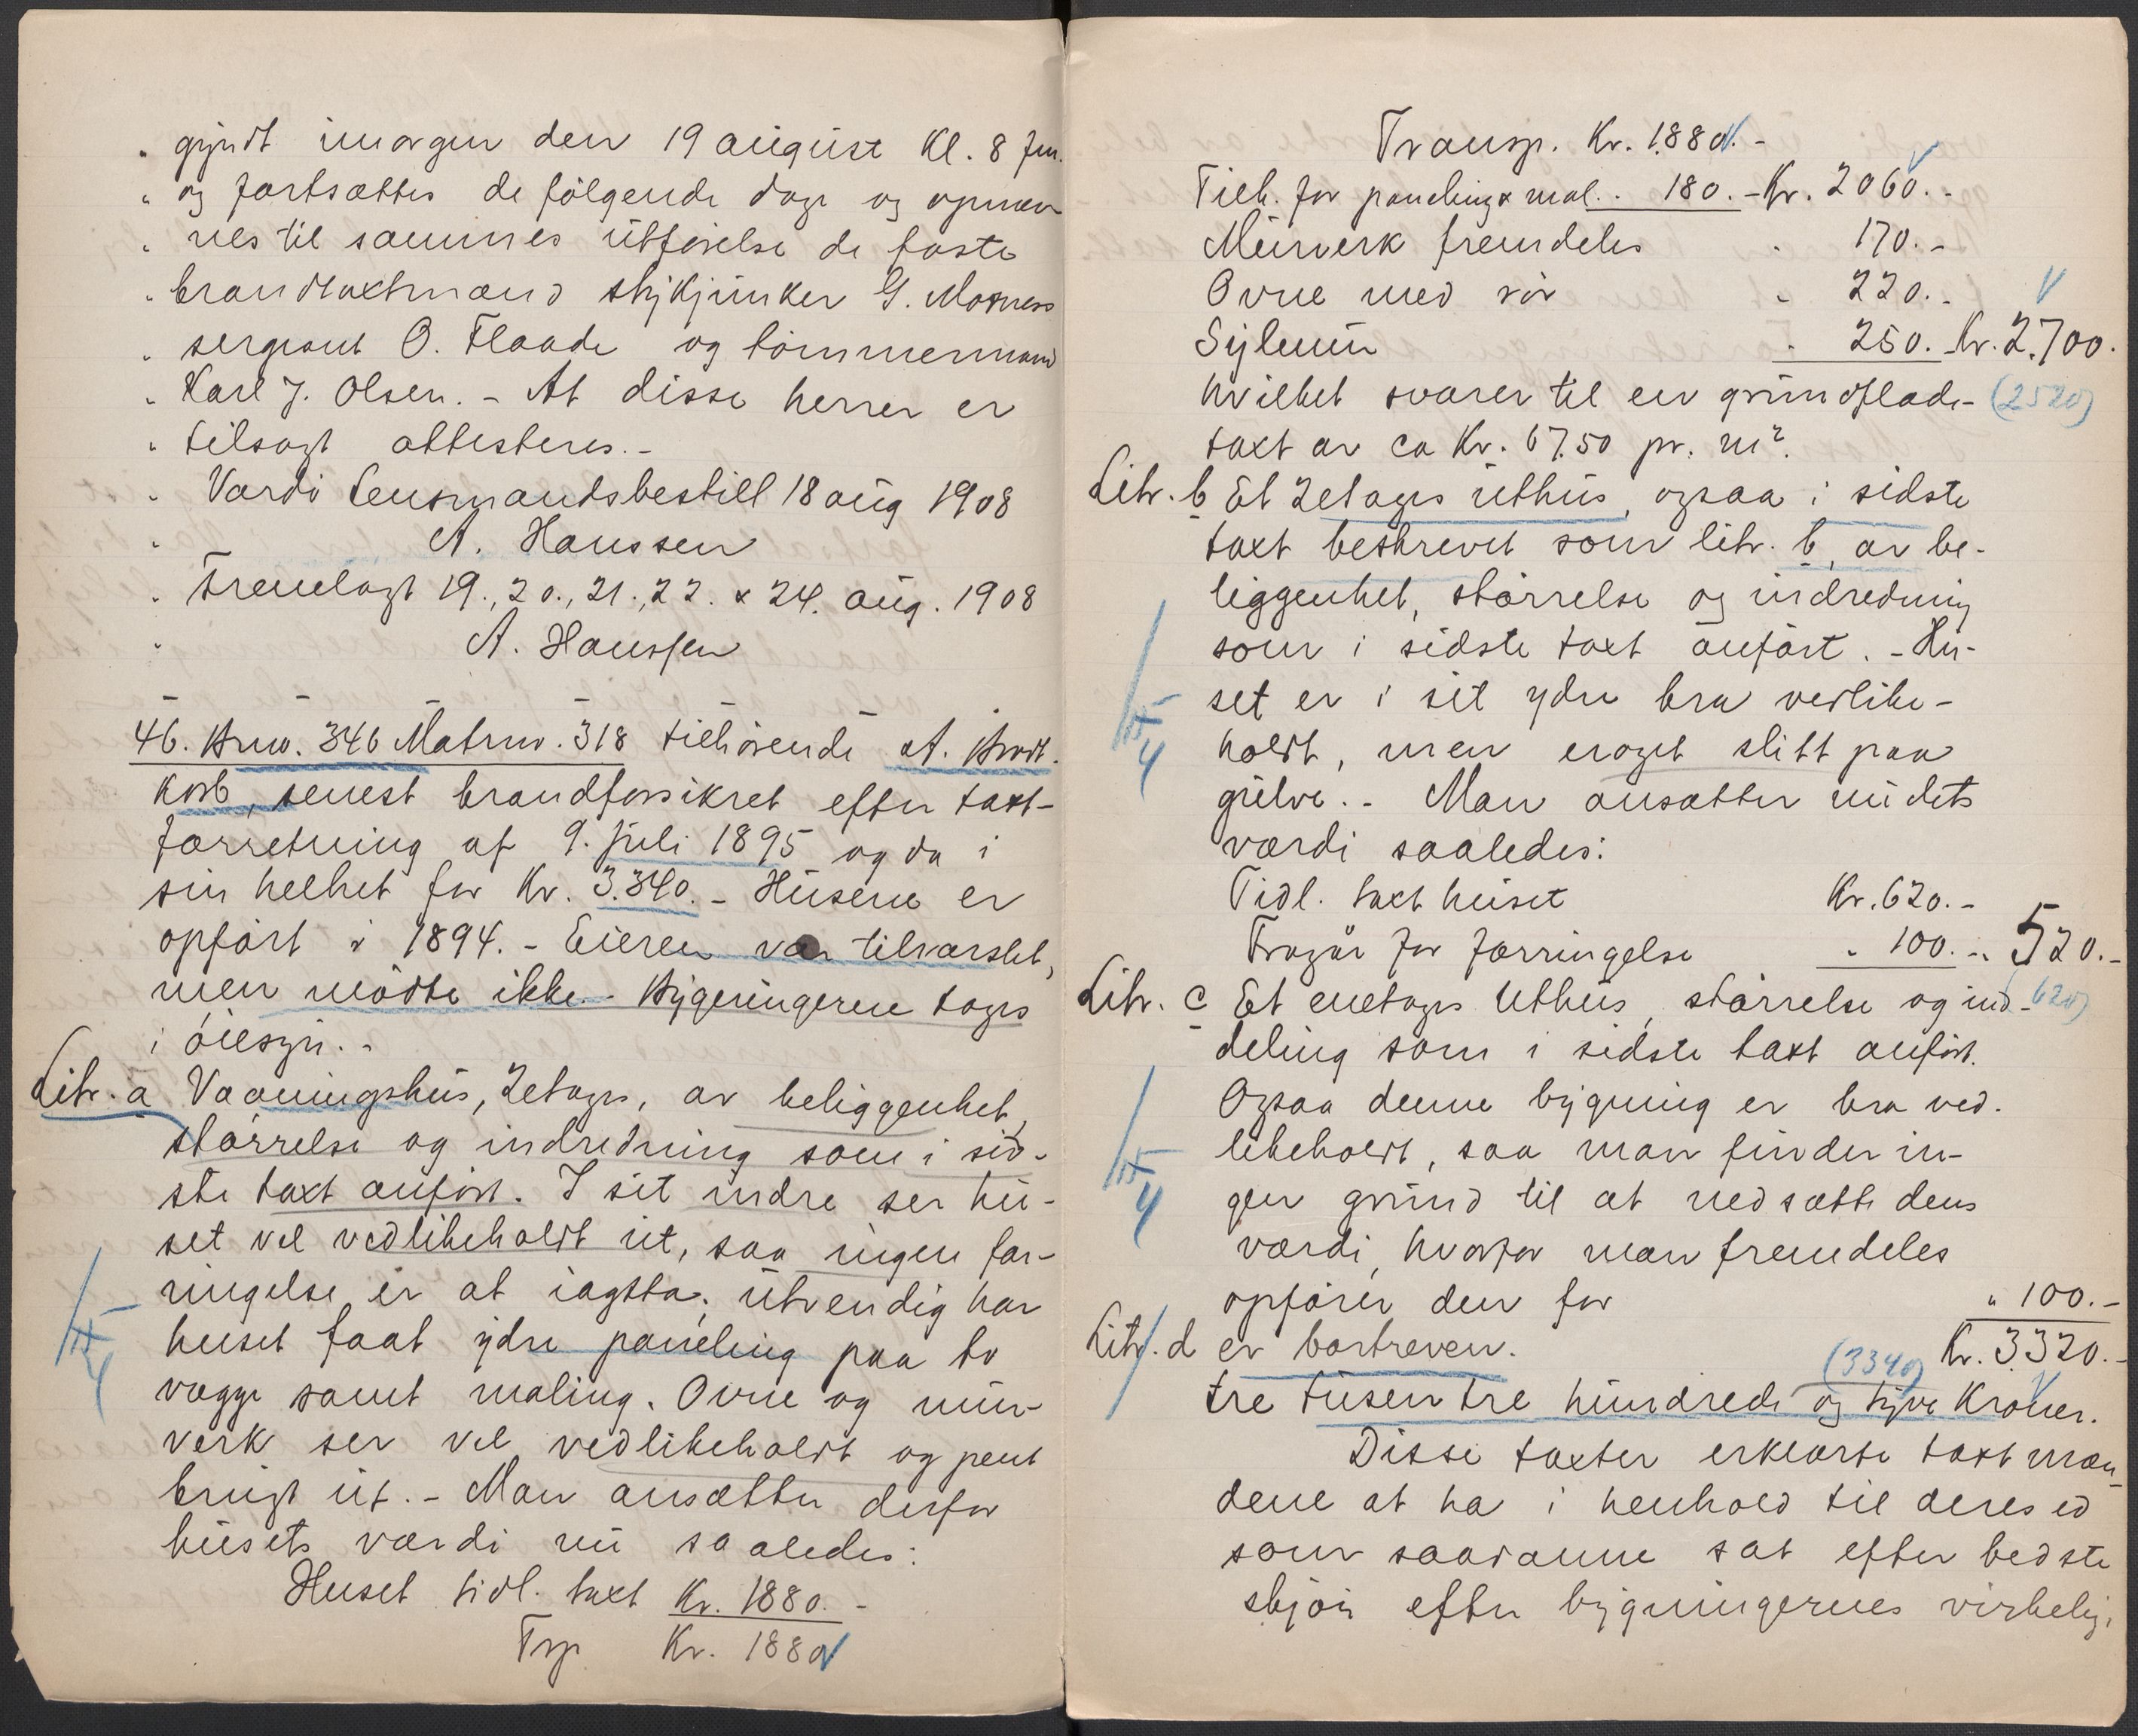 " gyndt imorgen den 19 august Kl. 8 fm.
" og fortsættes de følgende dage og opnæv
" nes til sammes utførelse de faste
" brandtaxtmænd skykjunker G. Mosness
" sergeant O. Flaade og tømmermand
" Karl J. Olsen. - At disse herrer er
" tilsagt attesteres. -
" Vardø lensmandsbestill 18 aug 1908
" A. Hanssen
" Fremlagt 19., 20., 21., 22. & 24. aug. 1908
" A. Hanssen
46. Brno. 346 Matrno. 318 tilhørende A. Brodt-
korb, senest brandforsikret efter taxt-
forretning af 9. juli 1895 og da i
sin helhet for Kr. 3.340. - Husene er
opført i 1894. - Eieren var tilvarslet,
men mødte ikke. - Bygningerne toges
i øiesyn. -
Litr. a Vaaningshus, 2etages, av beliggenhet,
størrelse og indredning som i sid-
ste taxt anført. I sit indre ser hu-
set vel vedlikeholdt ut, saa ingen for-
ringelse er at iagtta; utvendig har
huset faat ydre paneling paa to
vægge samt maling. Ovne og mur-
verk ser vel vedlikeholdt og pent
brugt ut. - Man ansætter derfor
husets værdi nu saaledes:
Huset tidl. taxt Kr. 1880. -
Trp. Kr. 1880
Transp. Kr. 1.880. -
Till. for paneling & mal. . 180. - Kr. 2060. -
Murverk fremdeles " 170. -
Ovne med rør " 220. -
Sylemur " 250. - Kr. 2.700.
hvilket svarer til en grundflade- (2520)
taxt av ca Kr. 67.50 pr. m².
Litr. b Et 2etages uthus, ogsaa i sidste
taxt beskrevet som litr. b, av be-
liggenhet, størrelse og indredning
som i sidste taxt anført. - Hu-
set er i sit ydre bra vedlike-
holdt, men noget slitt paa
gulve. - Man ansætter nu dets
værdi saaledes:
Tidl. taxt huset Kr. 620. -
Fragår for forringelse " 100. - " 520. -
Litr. c Et enetages Uthus, størrelse og ind- (620)
deling som i sidste taxt anført.
Ogsaa denne bygning er bra ved-
likeholdt, saa man finder in-
gen grund til at nedsætte dens
værdi, hvorfor man fremdeles
opfører den for " 100. -
Litr. d er bortreven. (3340) Kr. 3.320. -
tre tusen tre hundrede og tyve Kroner.
Disse taxter erklærte taxtmæn-
dene at ha i henhold til deres ed
som saadanne sat efter bedste
skjøn efter bygningernes virkelig,